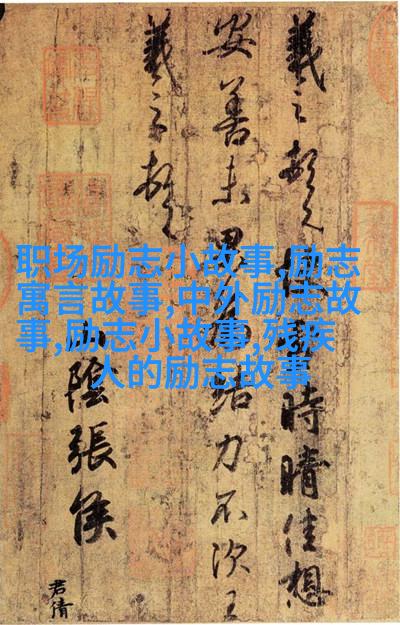 职场励志小故事,励志
寓言故事,中外励志故
事,励志小故事,残疾
人的励志故事
羲之頓首 時晴佳想
安善未果 結力不次王
羲之頓首 陰張侯
君倩